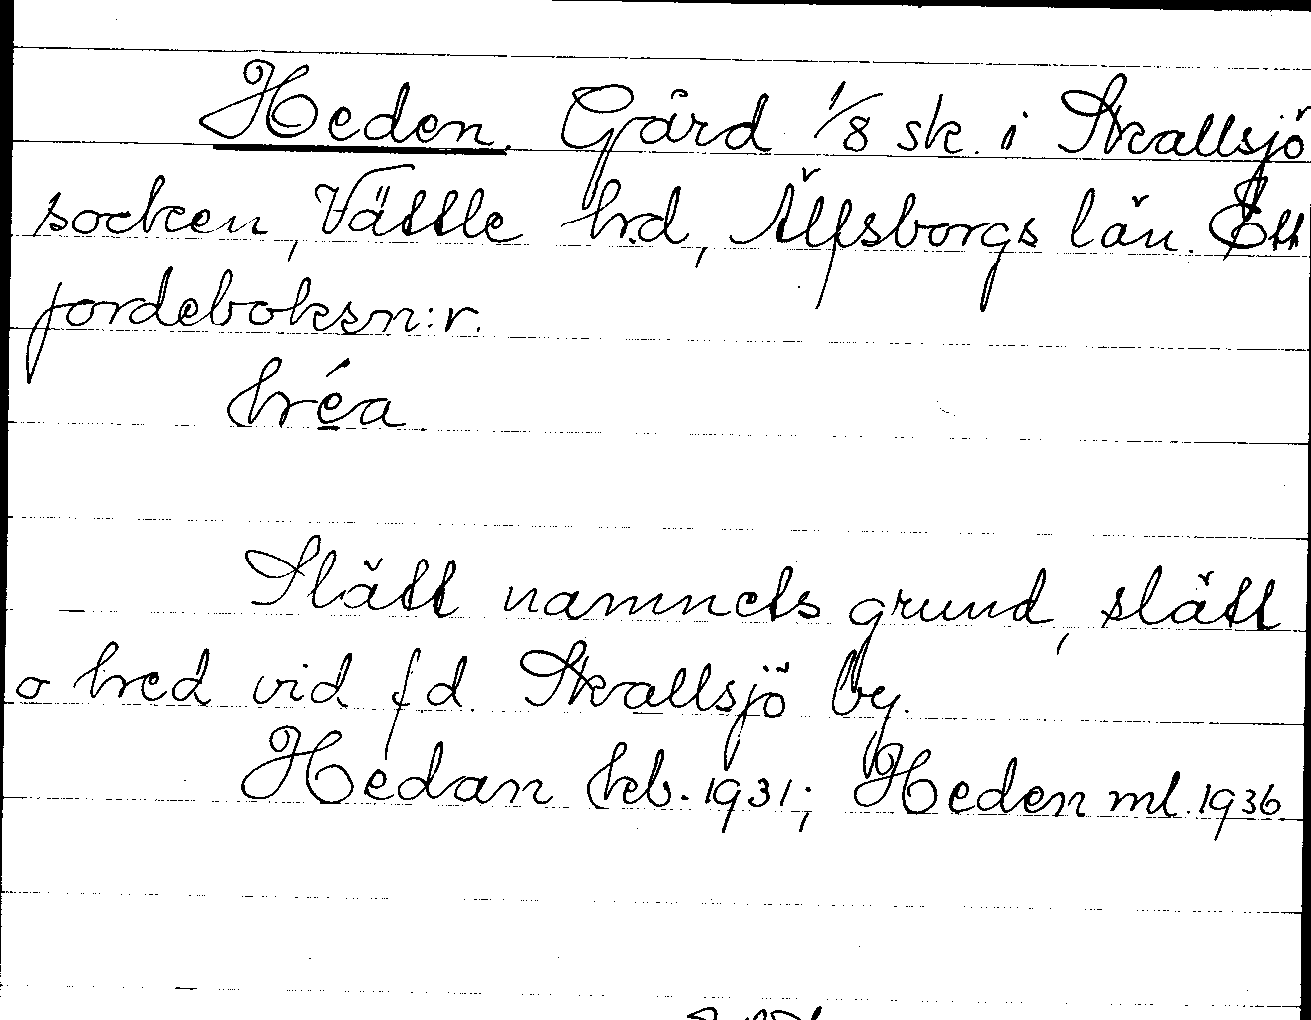 Heden. Gård 1/8 sk. i Skallsjö
socken, Vättle hrd, Älfsborgs län. Ett
jordeboksn:r.
hréa
Slätt namnets grund, slätt
o bred vid f d. Skallsjö by.
Hedan kb. 1931; Heden ml. 1936